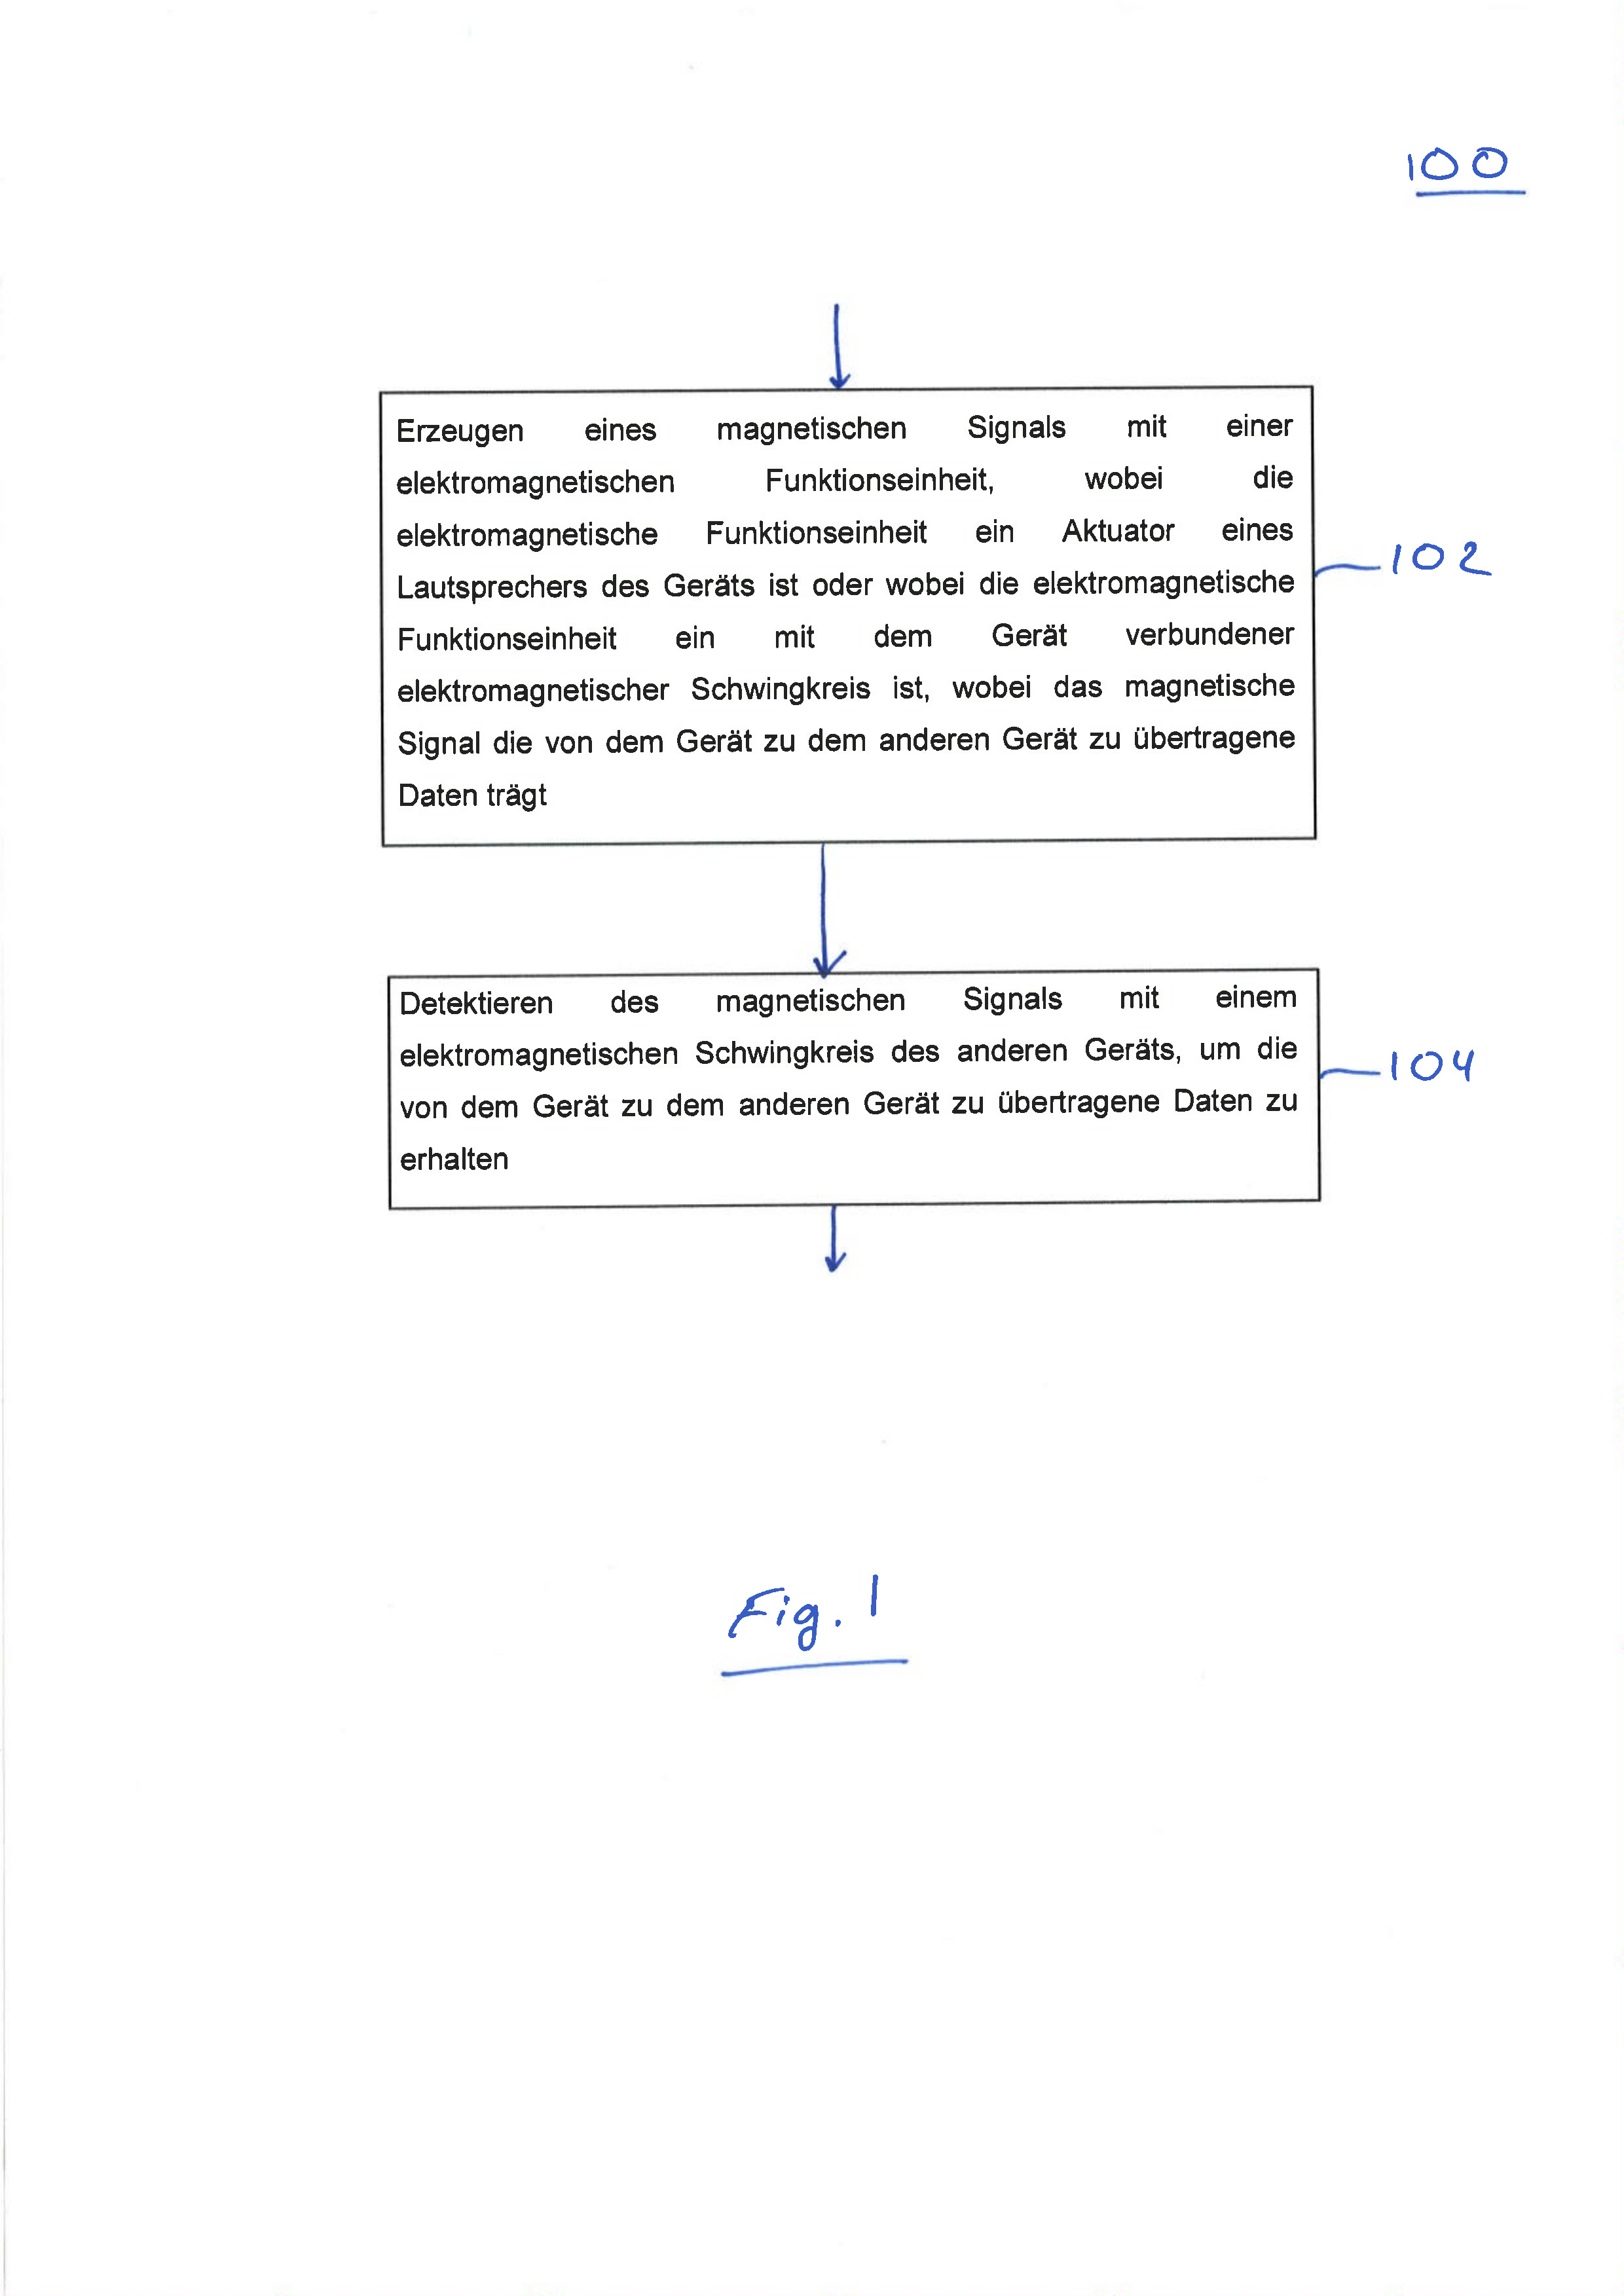 100
Erzeugen eines magnetischen Signals mit einer
elektromagnetischen Funktionseinheit, wobei die
elektromagnetische Funktionseinheit ein Aktuator eines
Lautsprechers des Geräts ist oder wobei die elektromagnetische
Funktionseinheit ein mit dem Gerät verbundener
elektromagnetischer Schwingkreis ist, wobei das magnetische
Signal die von dem Gerät zu dem anderen Gerät zu übertragene
Daten trägt
102
Detektieren des magnetischen Signals mit einem
elektromagnetischen Schwingkreis des anderen Geräts, um die
von dem Gerät zu dem anderen Gerät zu übertragene Daten zu
erhalten
104
Fig. 1